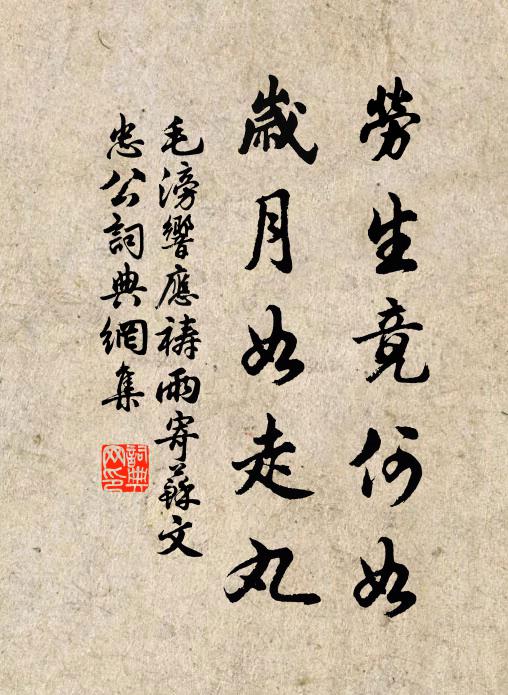 勞生竟何如
歲月如走丸
毛滂響應禱雨寄蘇文
忠公詞典網集
詞典網印